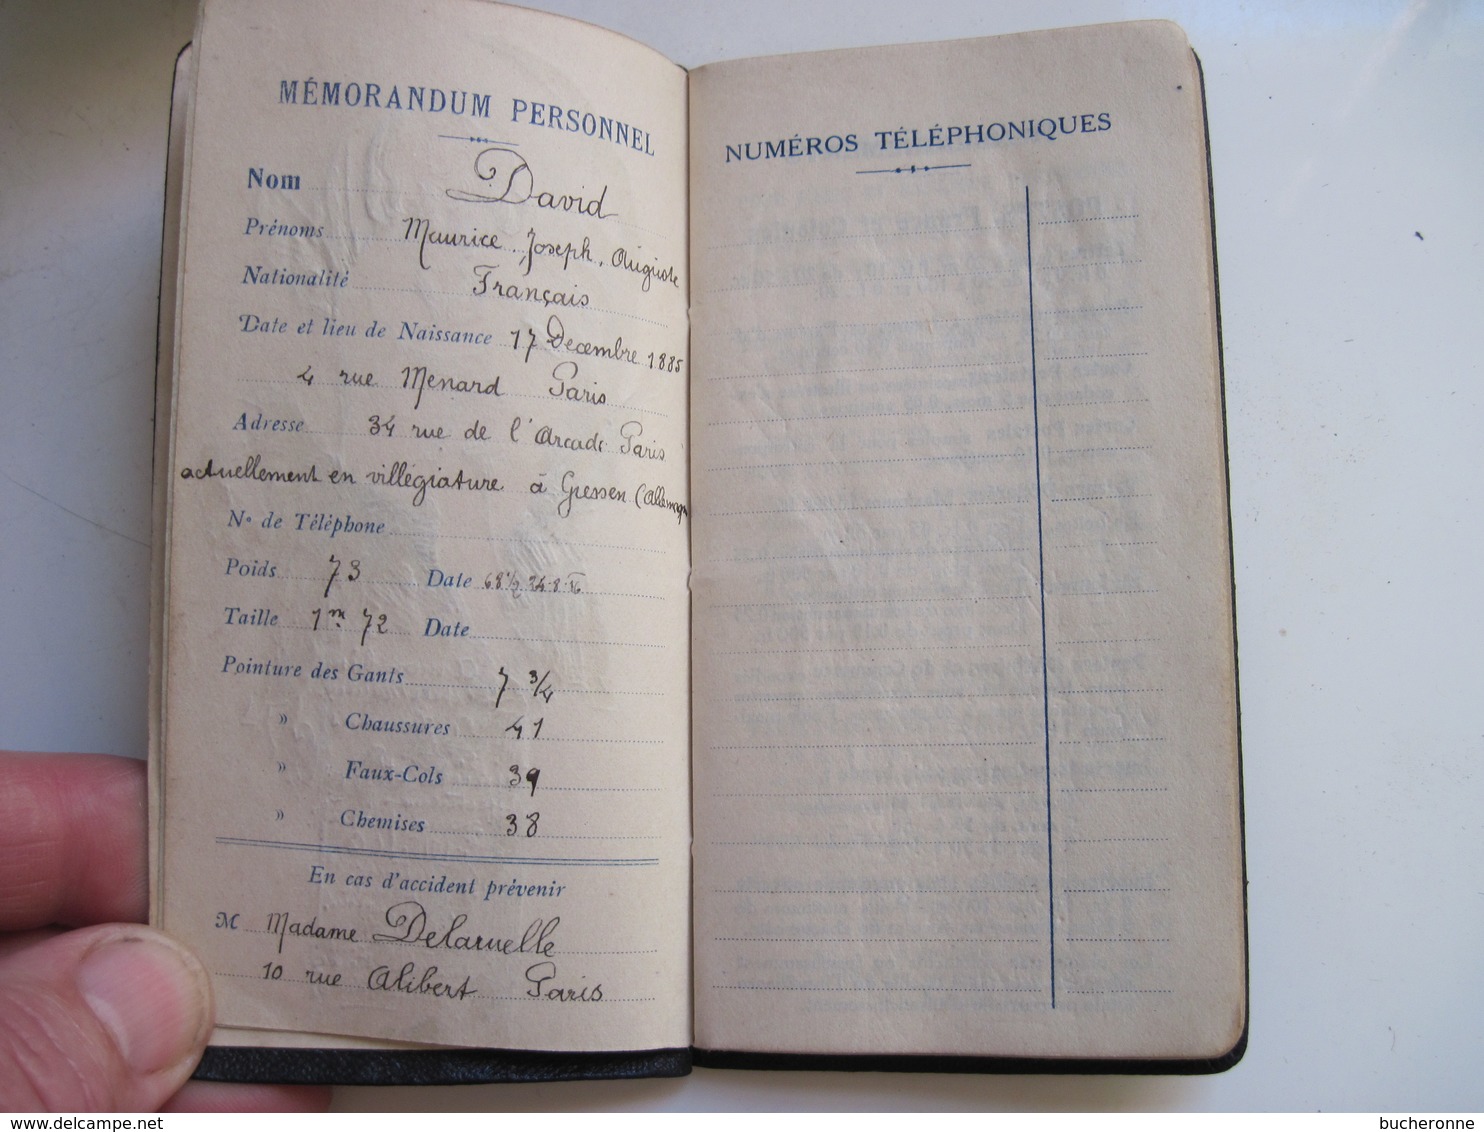 MÉMORANDUM PERSONNEL
Nom David
Prénoms Maurice, Joseph, Auguste
Nationalité Français
Date et lieu de Naissance 17 Decembre 1885
4 rue Menard Paris
Adresse 34 rue de l'Arcade Paris
actuellement en villégiature à Giessen (Allemagne
N° de Téléphone
Poids 73 Date 68 1/2 24-8-16
Taille 1m 72 Date
Pointure des Gants 7 3/4
» Chaussures 41
» Faux-Cols 39
» Chemises 38
En cas d'accident prévenir
M Madame Delaruelle
10 rue Alibert Paris
NUMÉROS TÉLÉPHONIQUES
bucheronne